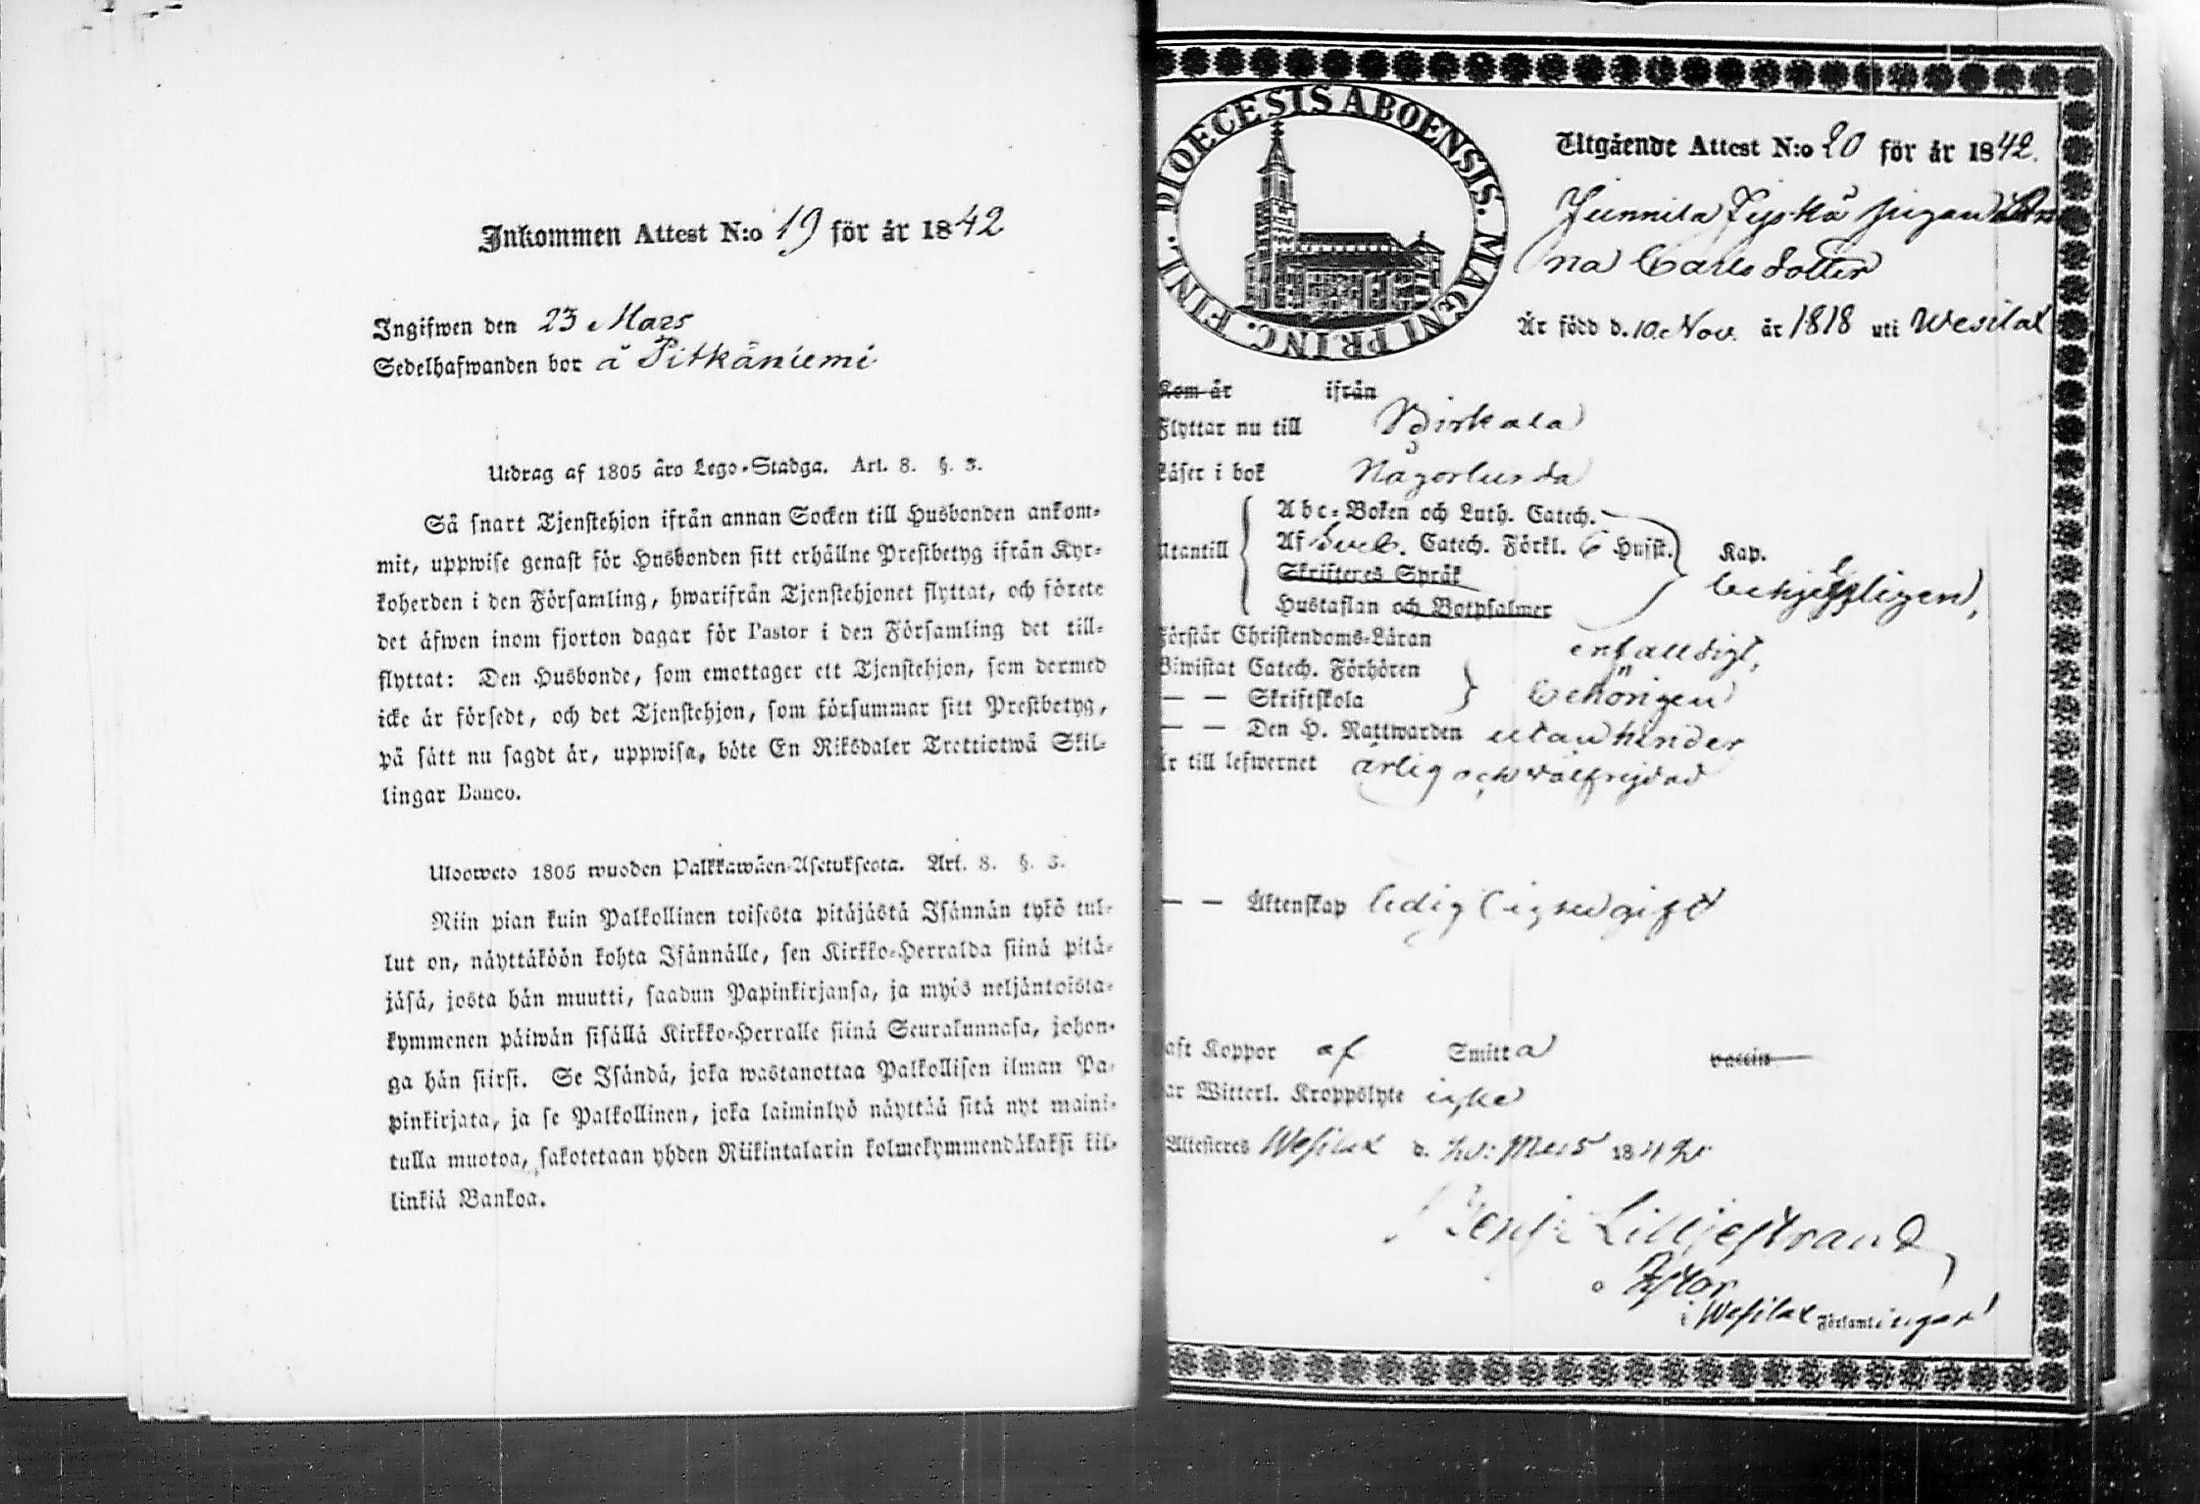 Inkommen Attest N:o 19 för år 1842
Ingifwen den 23 Mars
Sedelhafwanden bor å Pitkäniemi
Utdrag af 1805 åro Lego-Stadga. Art. 8. §. 3.
Så snart Tjenstehjon ifrån annan Socken till Husbonden ankom-
mit, uppwise genast för Husbonden sitt erhållne Prestbetyg ifrån Kyr-
koherden i den Församling, hwarifrån Tjenstehjonet flyttat, och förete
det äfwen inom fjorton dagar för Pastor i den Församling det till-
flyttat: Den Husbonde, som emottager ett Tjenstehjon, som dermed
icke är försedt, och det Tjenstehjon, som försummar sitt Prestbetyg,
på sätt nu sagdt är, uppwisa, böte En Riksdaler Trettiotwå Skil-
lingar Banco.
Uloswets 1805 wuoden Palkkawäen-Asetuksesta. Art. 8. §. 3.
Niin pian kuin Palkollinen toisesta pitäjästä Isännän tykö tul-
lut on, näyttäköön kohta Isännälle, sen Kirkko-Herralda siinä pitä-
jäsä, josta hän muutti, saadun Papinkirjansa, ja myös neljäntoista-
kymmenen päiwän sisällä Kirkko-Herralle siinä Seurakunnasa, johon-
ga hän siirsi. Se Isändä, joka wastanottaa Palkollisen ilman Pa-
pinkirjata, ja se Palkollinen, joka laiminlyö näyttää sitä nyt maini-
tulla muotoa, sakotetaan yhden Riikintalarin kolmekymmendäkaksi kil-
linkiä Bankoa.
DIOECESIS ABOENSIS. MAGNI PRINC. FINL.
Utgående Attest N:o 20 för år 1842.
Junnila Jyskä pigan An
na Carlsdotter
Är född d. 10 Nov. år 1818 uti Wesilax
Kom år ifrån
Flyttar nu till Birkala
Läser i bok Någorlunda
Utantill
Abc-Boken och Luth. Catech.
Af Sveb. Catech. Förkl. 6 Husst. Kap.
Skriftenes Språk
Hustaflan och Botpsalmer
Förstår Christendoms-Läran enfalldigt,
Biwistat Catech. Förhören
— — Skriftskola behörigen
— — Den H. Nattwarden utan hinder
Är till lefwernet ärlig och välfrejdad
— — Äktenskap ledig ( icke gift
Haft Koppor af Smitta vaccin
Har Witterl. Kroppslyte icke
Attesteres Wesilax d. Mars 1842
Benj: Lilljestrand
i Wesilax Församlingar